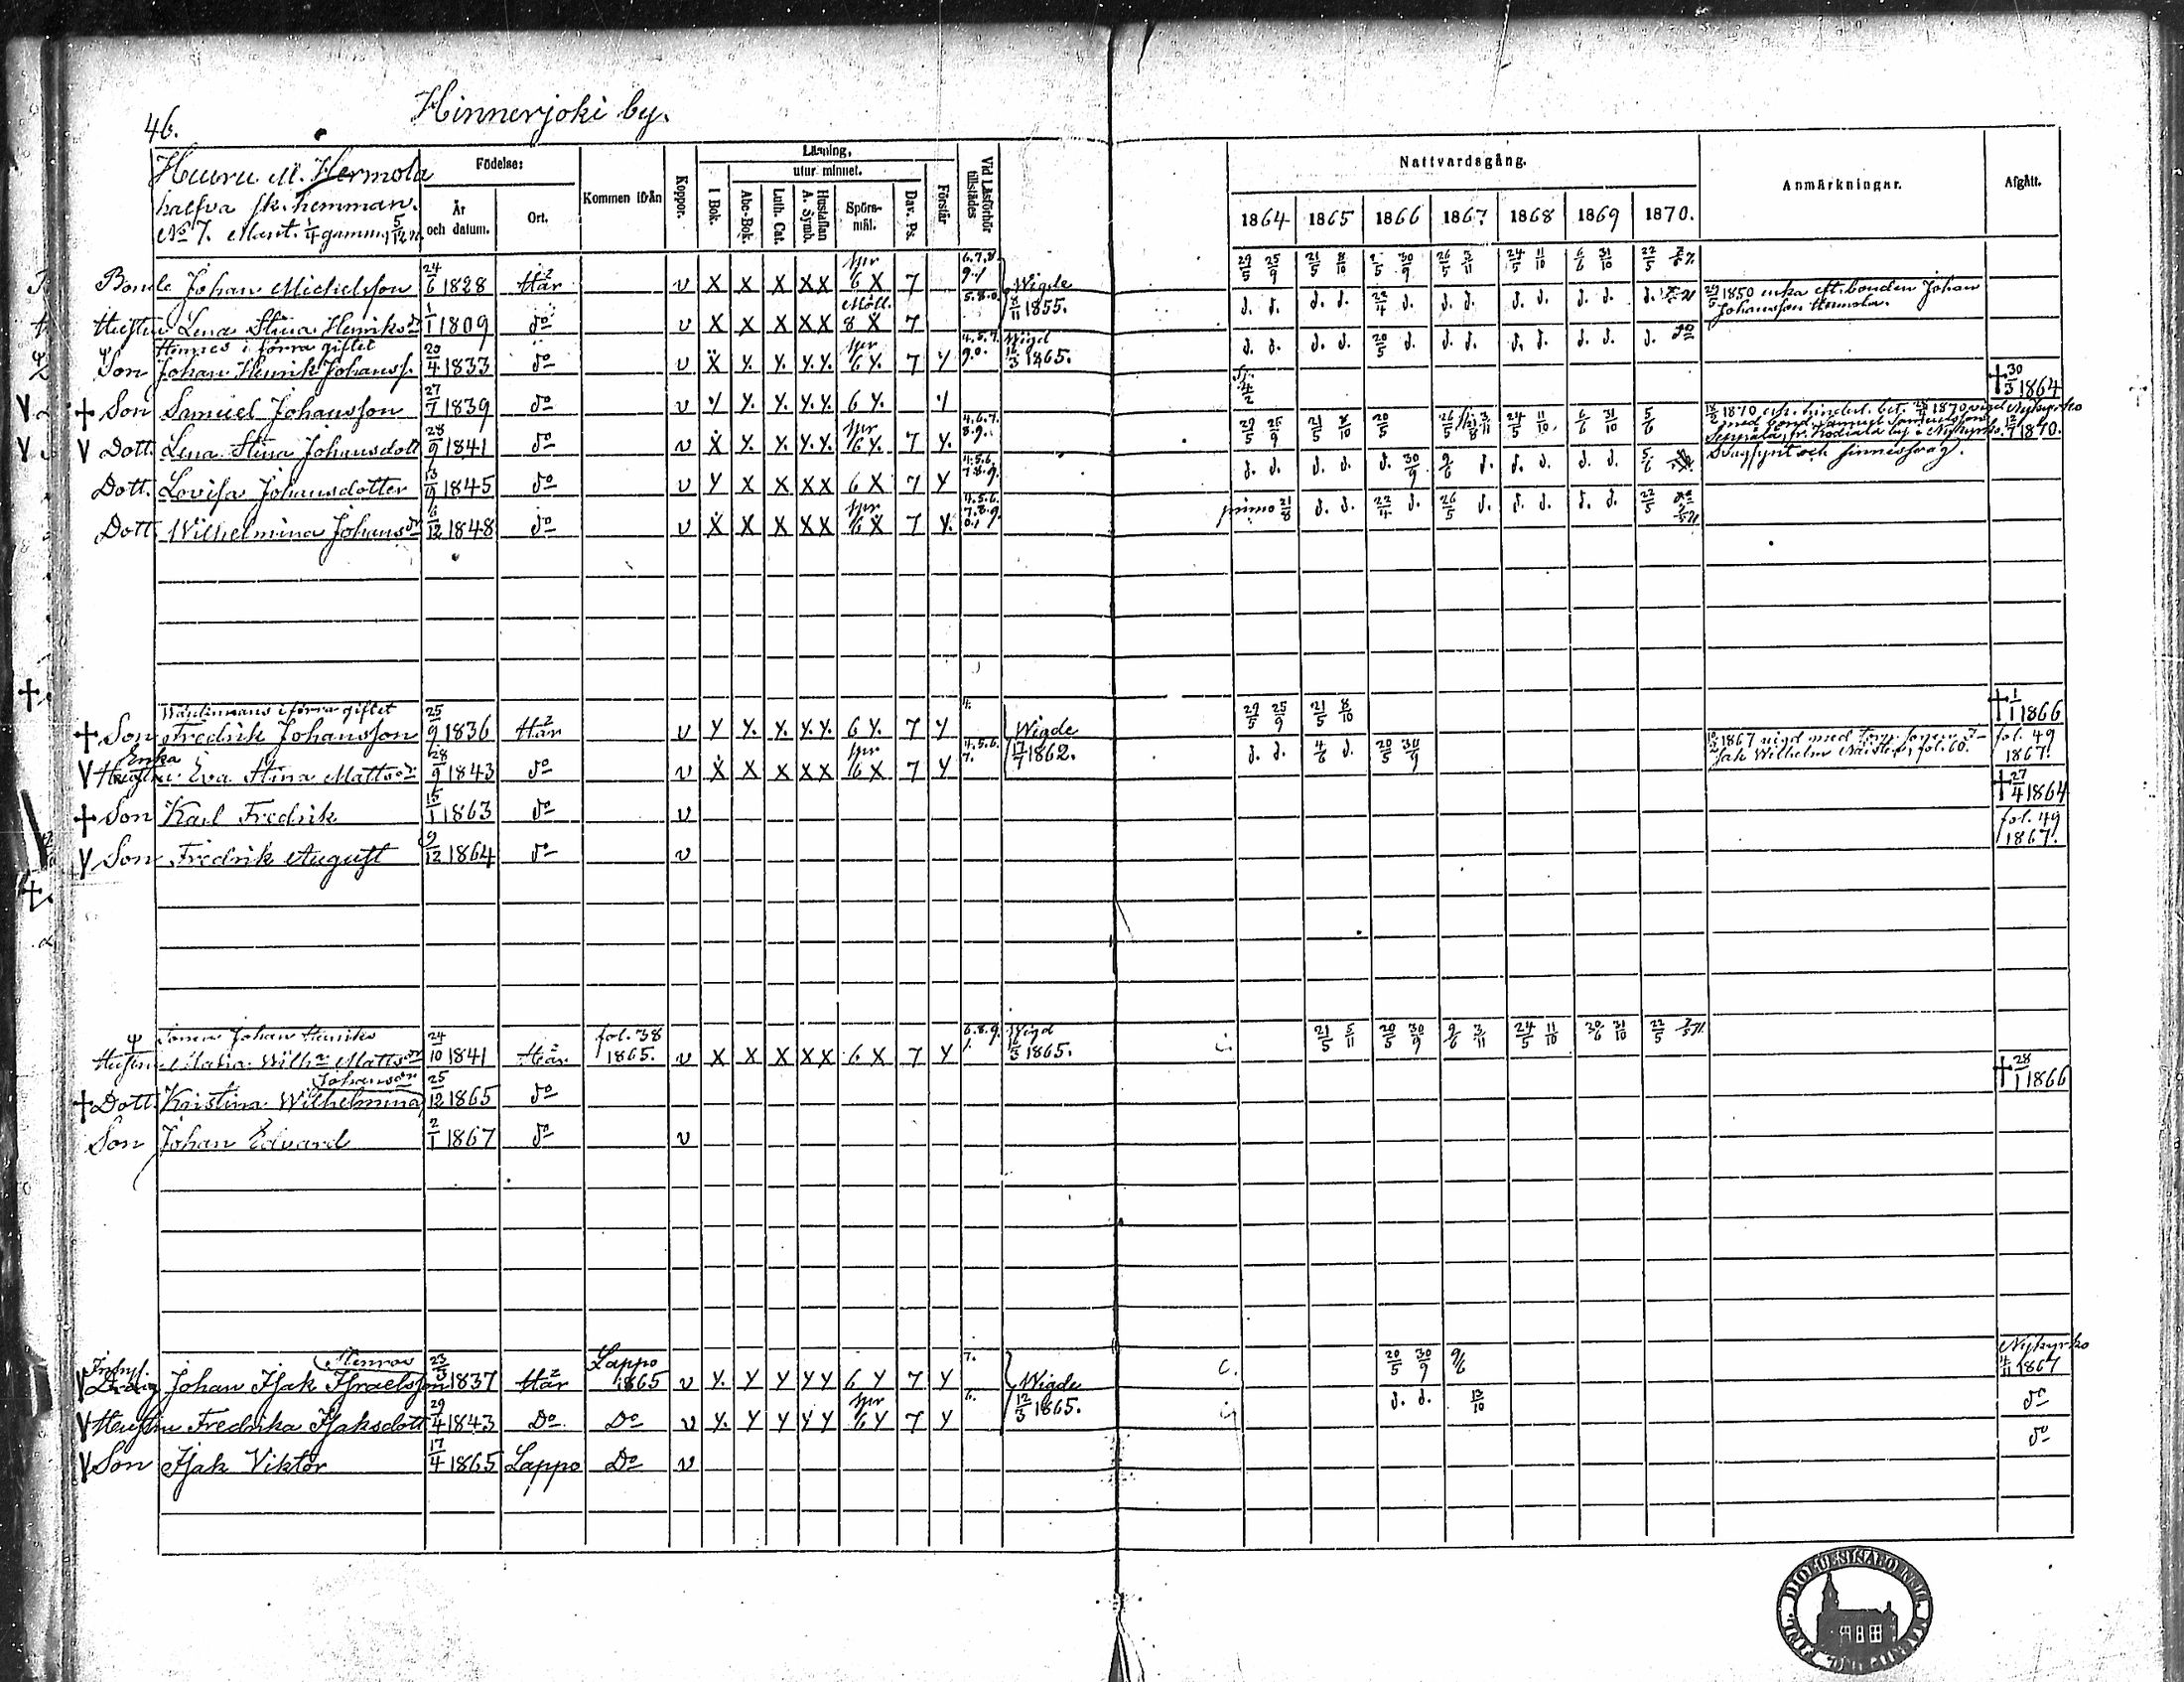 46. Hinnerjoki by.
Huuru M. Hermola
halfva sk. hemman.
No 7. Mant. 1/4 gamm. 5/12 n.
Födelse: År och datum. Ort. Kommen ifrån Koppor. Läsning, I Bok. utur minnet. Abc-Bok. Luth. Cat. Hustaflan A. Symb. Spörsmål. Dav. Ps. Förstår Vid Läsförhör tillstädes Nattvardsgång. 1864 1865 1866 1867 1868 1869 1870. Anmärkningar. Afgått.
Bonde Johan Michelsson 24/6 1828 Här v X X X X X spr 6 X 7 6.7.8. 9.1 Wigde 8/11 1855. 29/5 25/9 21/5 8/10 30/9 26/5 3/11 24/5 11/10 6/6 31/10 22/5
Hustru Lena Stina Henriksdr 1/1 1809 do v X X X X X Möll. 8 X 7 5.8.0. d. d. d. d. 22/4 d. d. d. d. d. d. d. d. 29/5 1850 enka eft. bonden Johan Johansson Hermola.
Hinnes i förra giftet
Son Johan Henrik Johanss. 20/4 1833 do v X Y. Y. Y. Y. spr 6 Y. 7 Y 4.5.7. 9.0. Wigd 16/3 1865. d. d. d. d. 20/5 d. d. d. d. d. d. d. d. do
† Son Samuel Johansson 27/7 1839 do v Y Y. Y. Y. Y. 6 Y. Y 4/2 † 30/3 1864
V Dott. Lena Stina Johansdott 28/9 1841 do v X Y. Y. Y. Y. spr 6 Y. 7 Y. 4.6.7. 8.9. 29/5 25/9 21/5 8/10 20/5 26/5 3/11 24/5 11/10. 6/6 31/10 5/6 1870 erh. hinderl. bet. 1870 vigd med bond. Samuel Samuelsson Seppälä, fr. Kodiala by i Nykyrko. Svagsynt och finnesfrög. Nykyrko 1870.
Dott. Lovisa Johansdotter 13/9 1845 do v Y X X X X 6 X 7 Y 4.5.6. 7.8.9. d. d. d. d. d. 30/9 9/6 d. d. d. d. d. 5/6
Dott. Wilhelmina Johansdr 6/12 1848 do v X X X X X spr 6 X 7 Y. 4.5.6. 7.8.9. 0.1 primo 21/8 d. d. 22/4 d. 26/5 d. d. d. d. d. 22/5
Wärdinnans i förra giftet
† Son Fredrik Johansson 25/9 1836 Här v Y Y. Y. Y. Y. 6 Y. 7 Y 4. Wigde 17/7 1862. 29/5 25/9 21/5 8/10 † 1/1 1866
V Enka Hustru Eva Stina Mattsdr 28/9 1843 do v X X X X X spr 6 X 7 Y 4.5.6. 7. d. d. 4/6 d. 20/5 30/9 1867 vigd med Wilhelm fol. 60. fol. 49 1867.
† Son Karl Fredrik 15/1 1863 do v † 27/4 1864
V Son Fredrik August 9/12 1864 do v fol. 49 1867.
Sonen Johan Henriks
Hustru Maria Wilha Mattsdr 24/10 1841 Här fol. 38 1865. v X X X X X 6 X 7 Y 6.8.9. 1. Wigd 16/3 1865. 21/5 5/11 20/5 30/9 9/6 3/11 24/5 11/10 30/6 31/10 22/5
† Dott. Kristina Wilhelmina Johansdr 25/12 1865 do † 28/1 1866
Son Johan Edvard 2/1 1867 do v
V Inhys. Dräng Johan Isak Israelsson 23/3 1837 Här Lappo 1865 v Y. Y Y Y Y 6 Y 7 Y 7. Wigde 12/3 1865. c. 20/5 30/9 9/6 Nykyrko 4/11 1867
V Hustru Fredrika Isaksdott 29/4 1843 Do Do v Y. Y Y Y Y spr 6 Y 7 Y 6. d. d. 13/10 do
V Son Isak Viktor 17/4 1865 Lappo Do v do